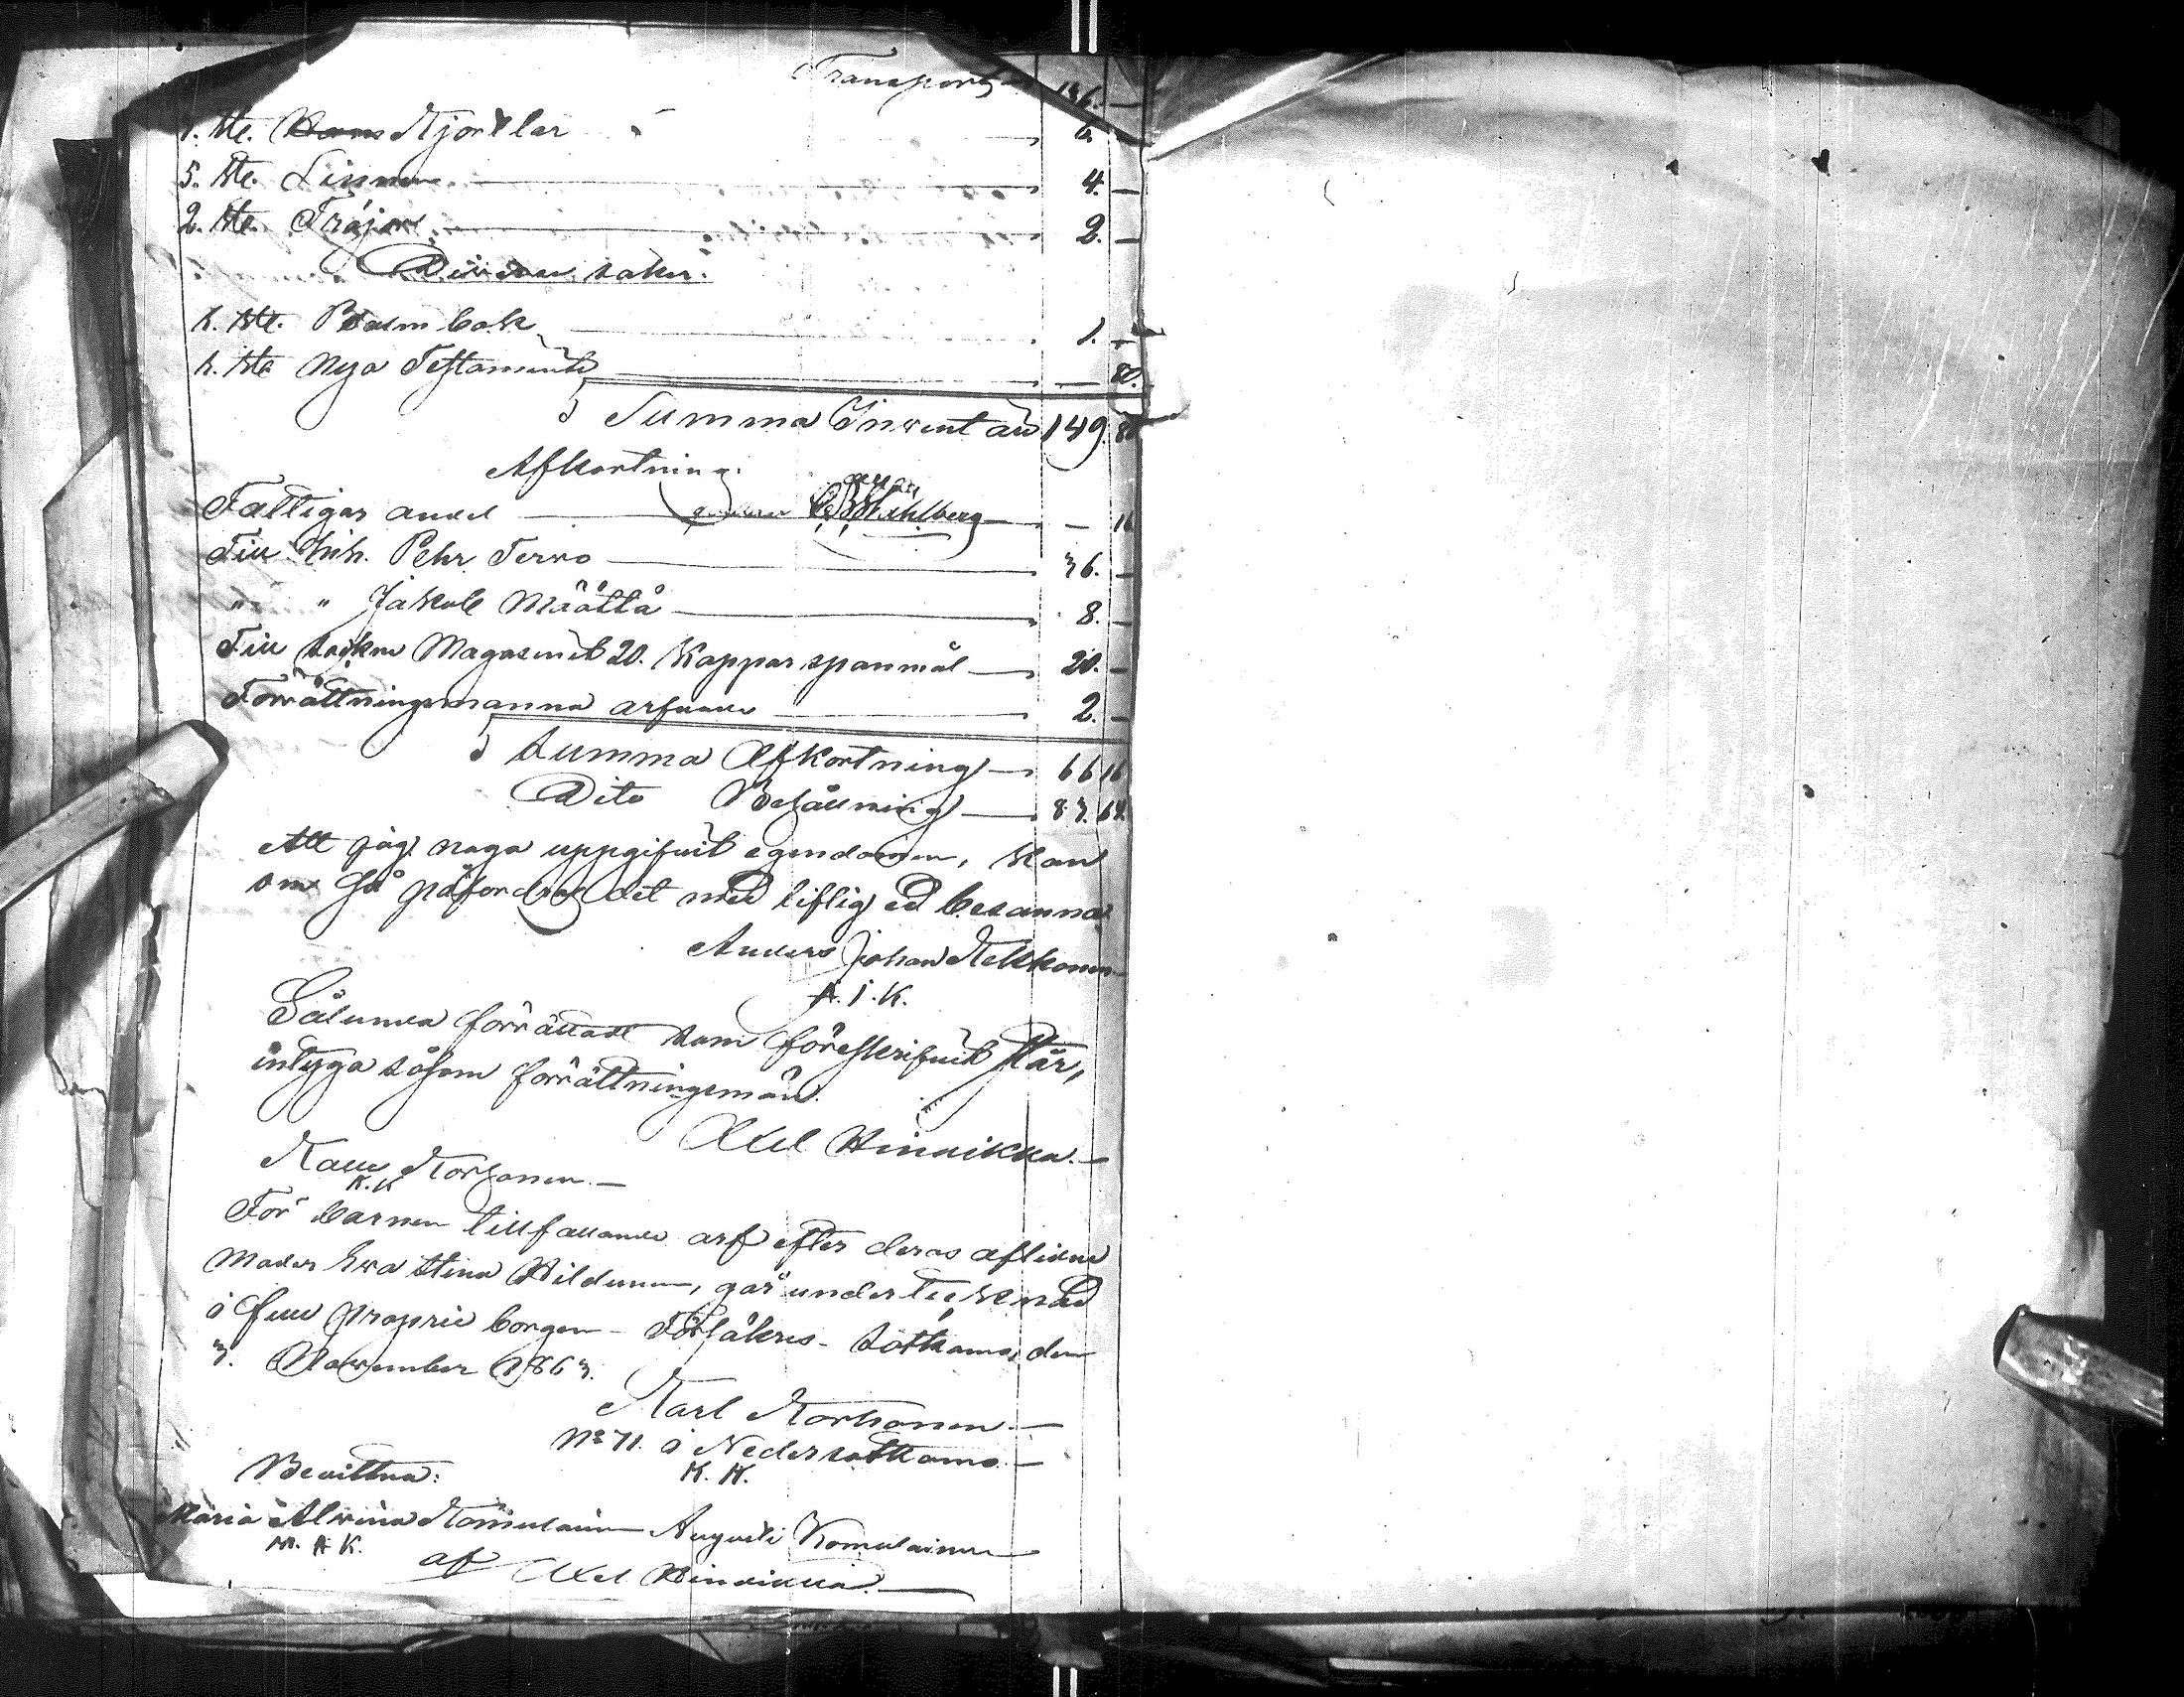 Transport 136. —
1. ste. Kjortlar — 6.
5. ste. Linnen — 4. —
2. ste. Tröjor — 2. —
Diverse saker.
1. ste. Psalm bok — 1. —
1. ste Nya Testamente — — 80.
Summa Inventari 149. 80
Afkortning.
Fattigas andel — Stahlberg — — 16
Till Inh. Pehr Tervo — 36. —
" " Jakob Määttä — 8. —
Till sockne Magasinet 20. Kappar spanmål — 20. —
Förrättningsmanna arfvode — 2. —
Summa Afkortning — 66 16
Dito Behållning — 83. 64.
Att jag noga uppgifvit egendomen, kan
om så påfordras det med liflig ed besanna
Anders Johan
A. J. K.
Sålunda förrättadt som föreskrifvit står,
intyga såsom förrättningsmän.
Axel
Korhonen. —
K. K
För barnen tillfallande arf efter deras aflidne
Moder Eva Stina Hildunen, går undertecknad
i full proprie borgen – Försäkres – Sotkamo, den
3. November 1863.
Karl Korhonen. —
No 71. i Nedersotkamo. —
K. K.
Bevittna:
Maria Alvina Komulainen Augusti Komulainen
M. A K.
af Axel